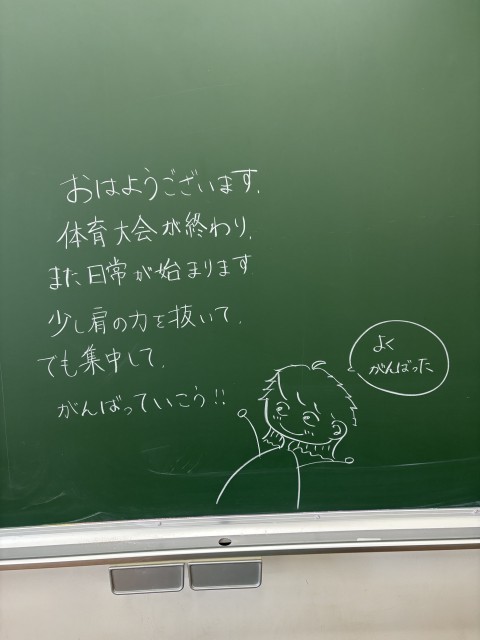 おはようございます.
体育大会が終わり,
また日常が始まります
少し肩の力を抜いて,
でも集中して,
がんばっていこう!!
よく
がんばった